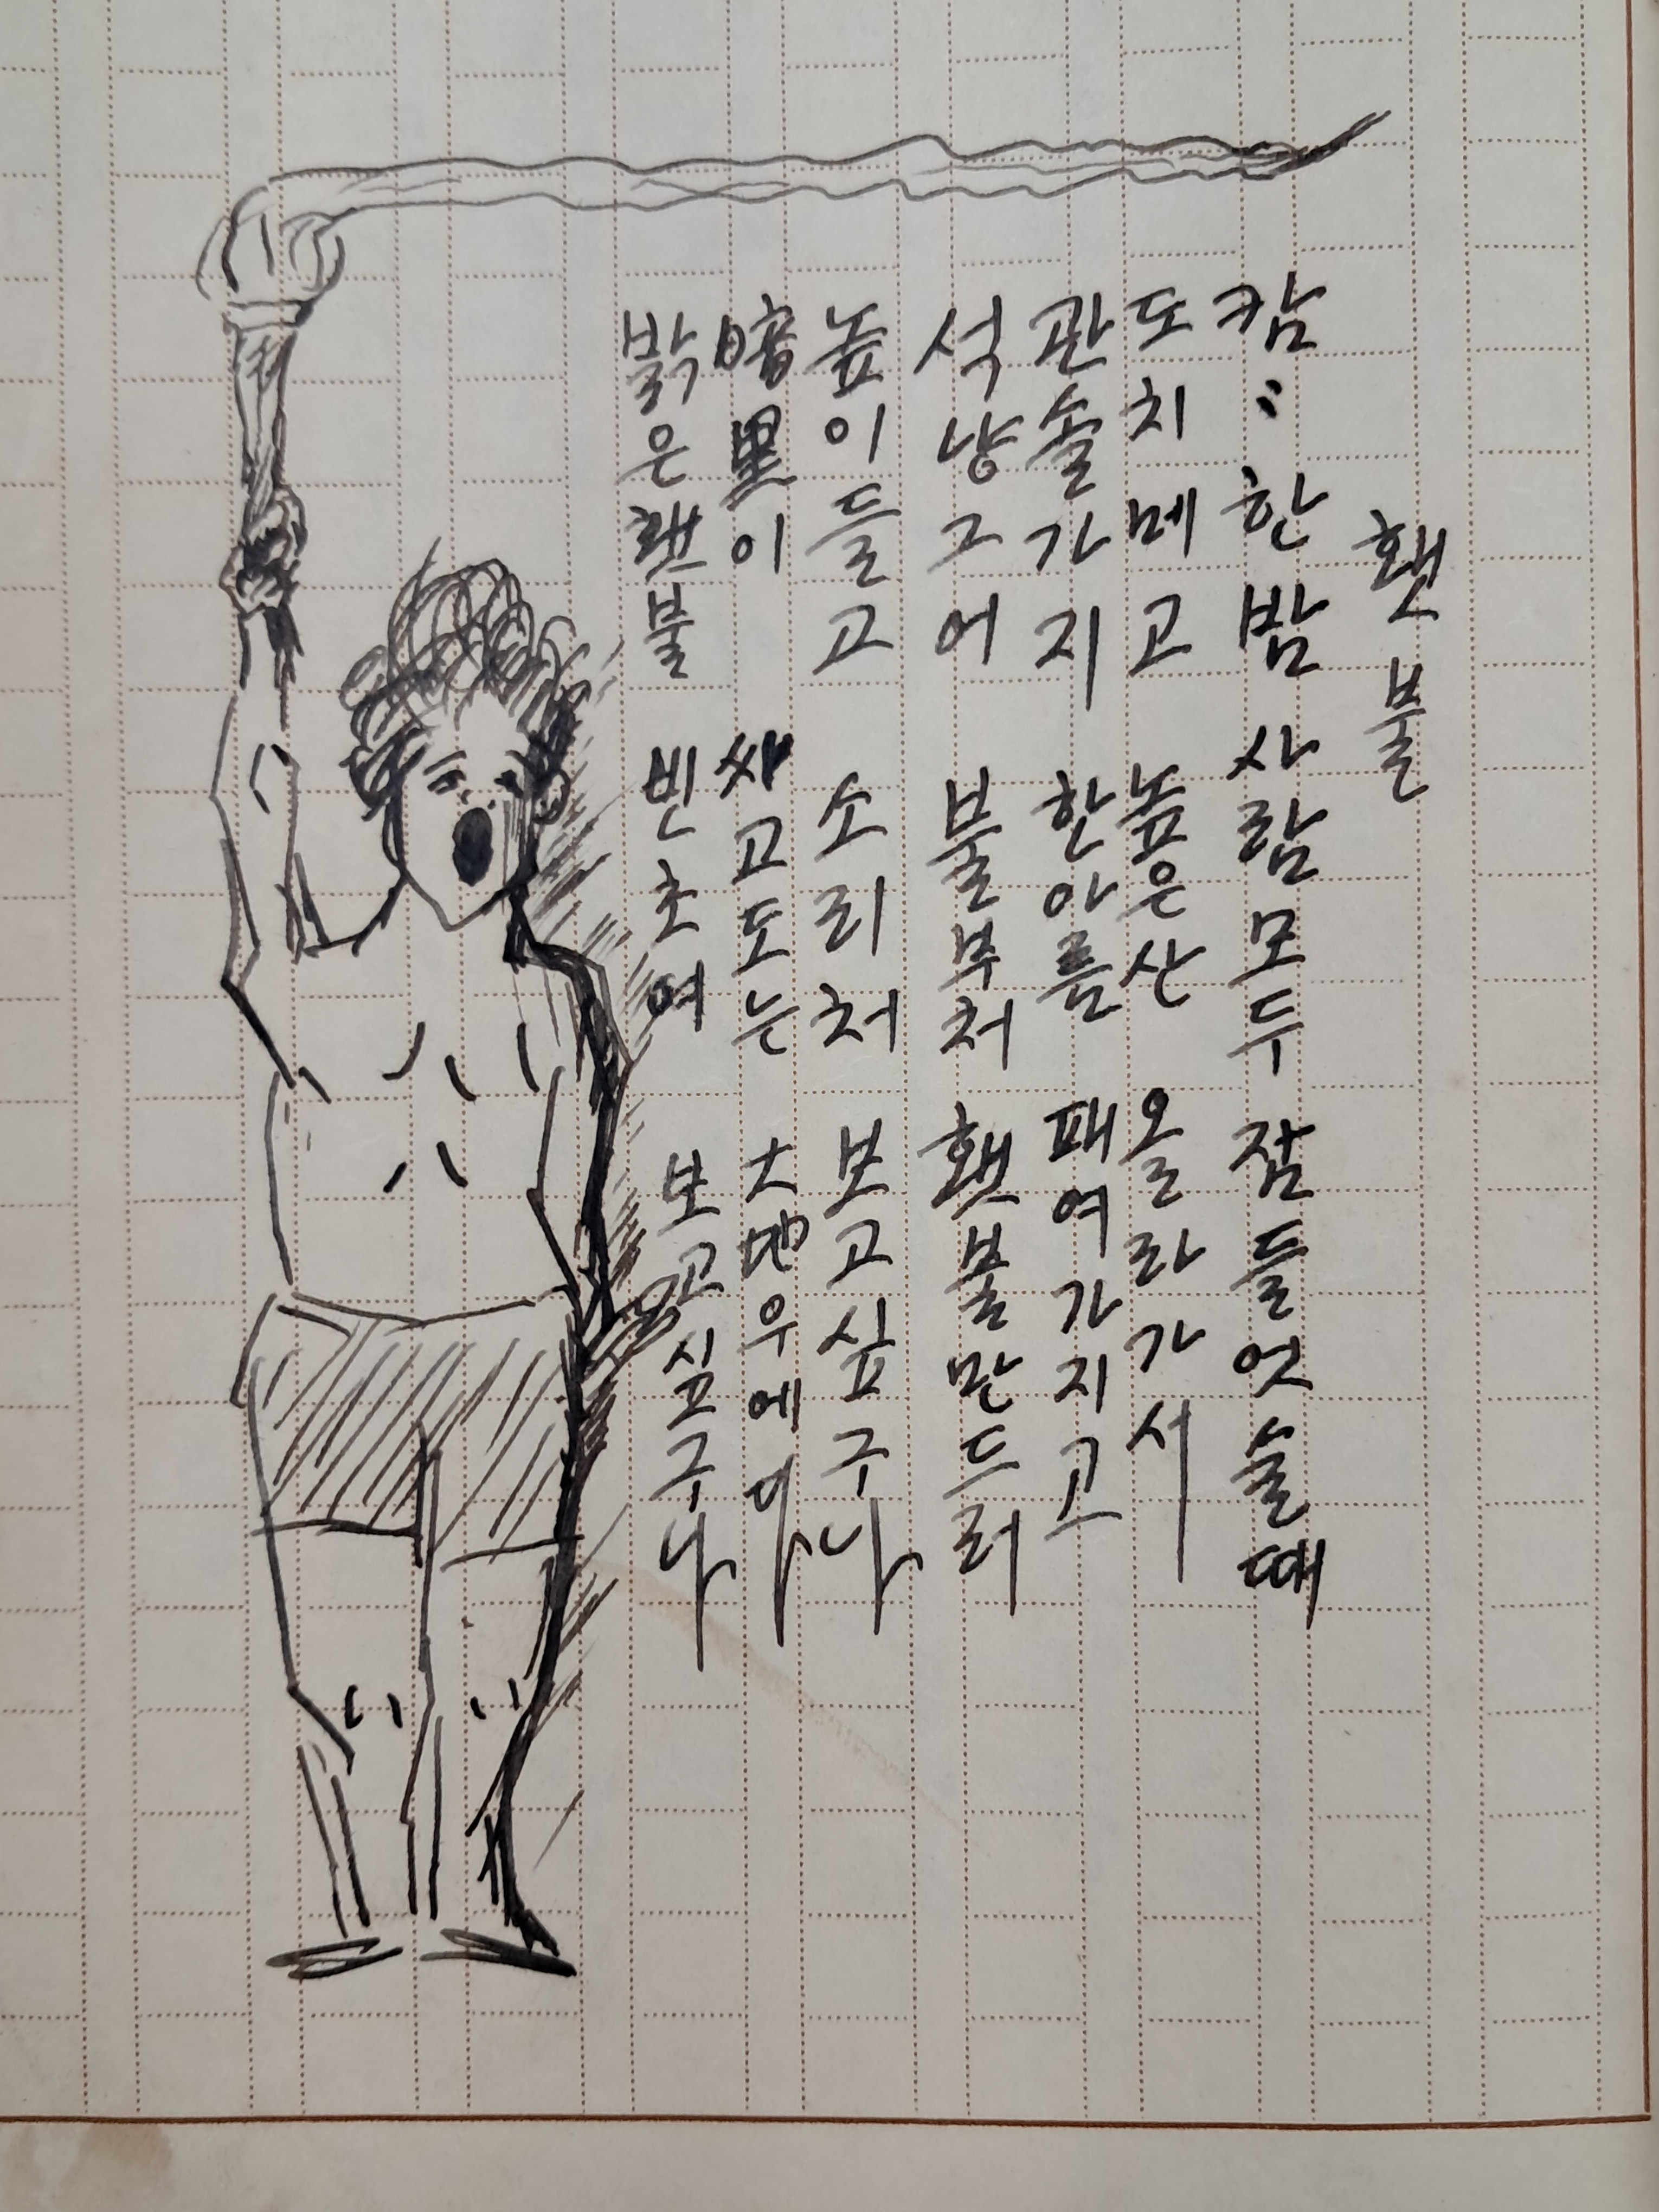 횃불
캄〻한밤 사람모두 잠들엇슬때
도치메고 높은산 올라가서
관솔가지 한아름 패여가지고
석냥그어 불부처 횃불만드러
높이들고 소리처 보고싶구나
暗黑이 싸고도는 大地우에다
밝은횃불 빈초여 보고싶구나